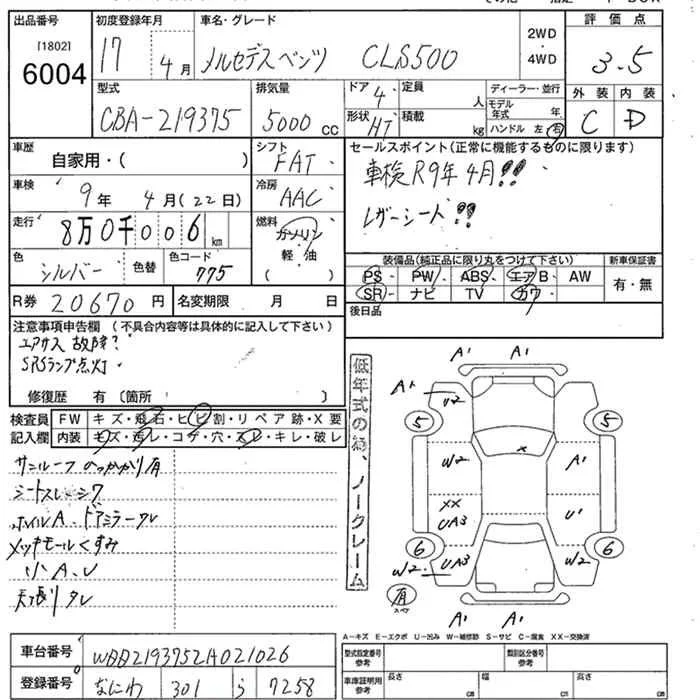 出品番号 初度登録年月 車名・グレード 2WD・4WD 評価点
[1802]
6004 17 4月 メルセデスベンツ CLS500 3.5
型式 排気量 ドア 4 定員 人 ディーラー・並行 外装 内装
CBA-219375 5000cc 形状 HT 積載 kg モデル年式 年 ハンドル 左・右 C D
車歴 自家用・( ) シフト FAT セールスポイント(正常に機能するものに限ります)
車検 9年 4月(22日) 冷房 AAC 車検R9年4月!!
走行 8万0千006km 燃料 ガソリン 軽・油 ( ) レザーシート!!
色 シルバー 色替 色コード 775 装備品(純正品に限り丸をつけて下さい) 新車保証書
PS・PW・ABS・エアB・AW 有・無
R券 20670円 名変期限 月 日 SR・ナビ・TV・カワ
後日品
注意事項申告欄(不具合内容等は具体的に記入して下さい)
エアサス故障?
SRSランプ点灯
修復歴 有(箇所 )
検査員記入欄 FW キズ・飛石・ヒビ割・リペア跡・X要
内装 キズ・汚レ・コゲ・穴・スレ・キレ・破レ
サンルーフ ひっかかり有
ホイルA、ドアミラースレ
メッキモールくすみ
小A、U
天張りタレ
低年式の為、ノークレーム
A1 A1
A1 U2
5 5
W2 X A1
XX UA3 U1
6 6
W2 UA3 W2
有 スペア
A1 A1
A-キズ E-エクボ U-凹み W-補修跡 S-サビ C-腐食 XX-交換済
車台番号 WDD2193752A021026 型式指定番号 参考 類別区分番号 参考
登録番号 なにわ 301 ら 7258 車庫証明用 参考 長さ cm 幅 cm 高さ cm